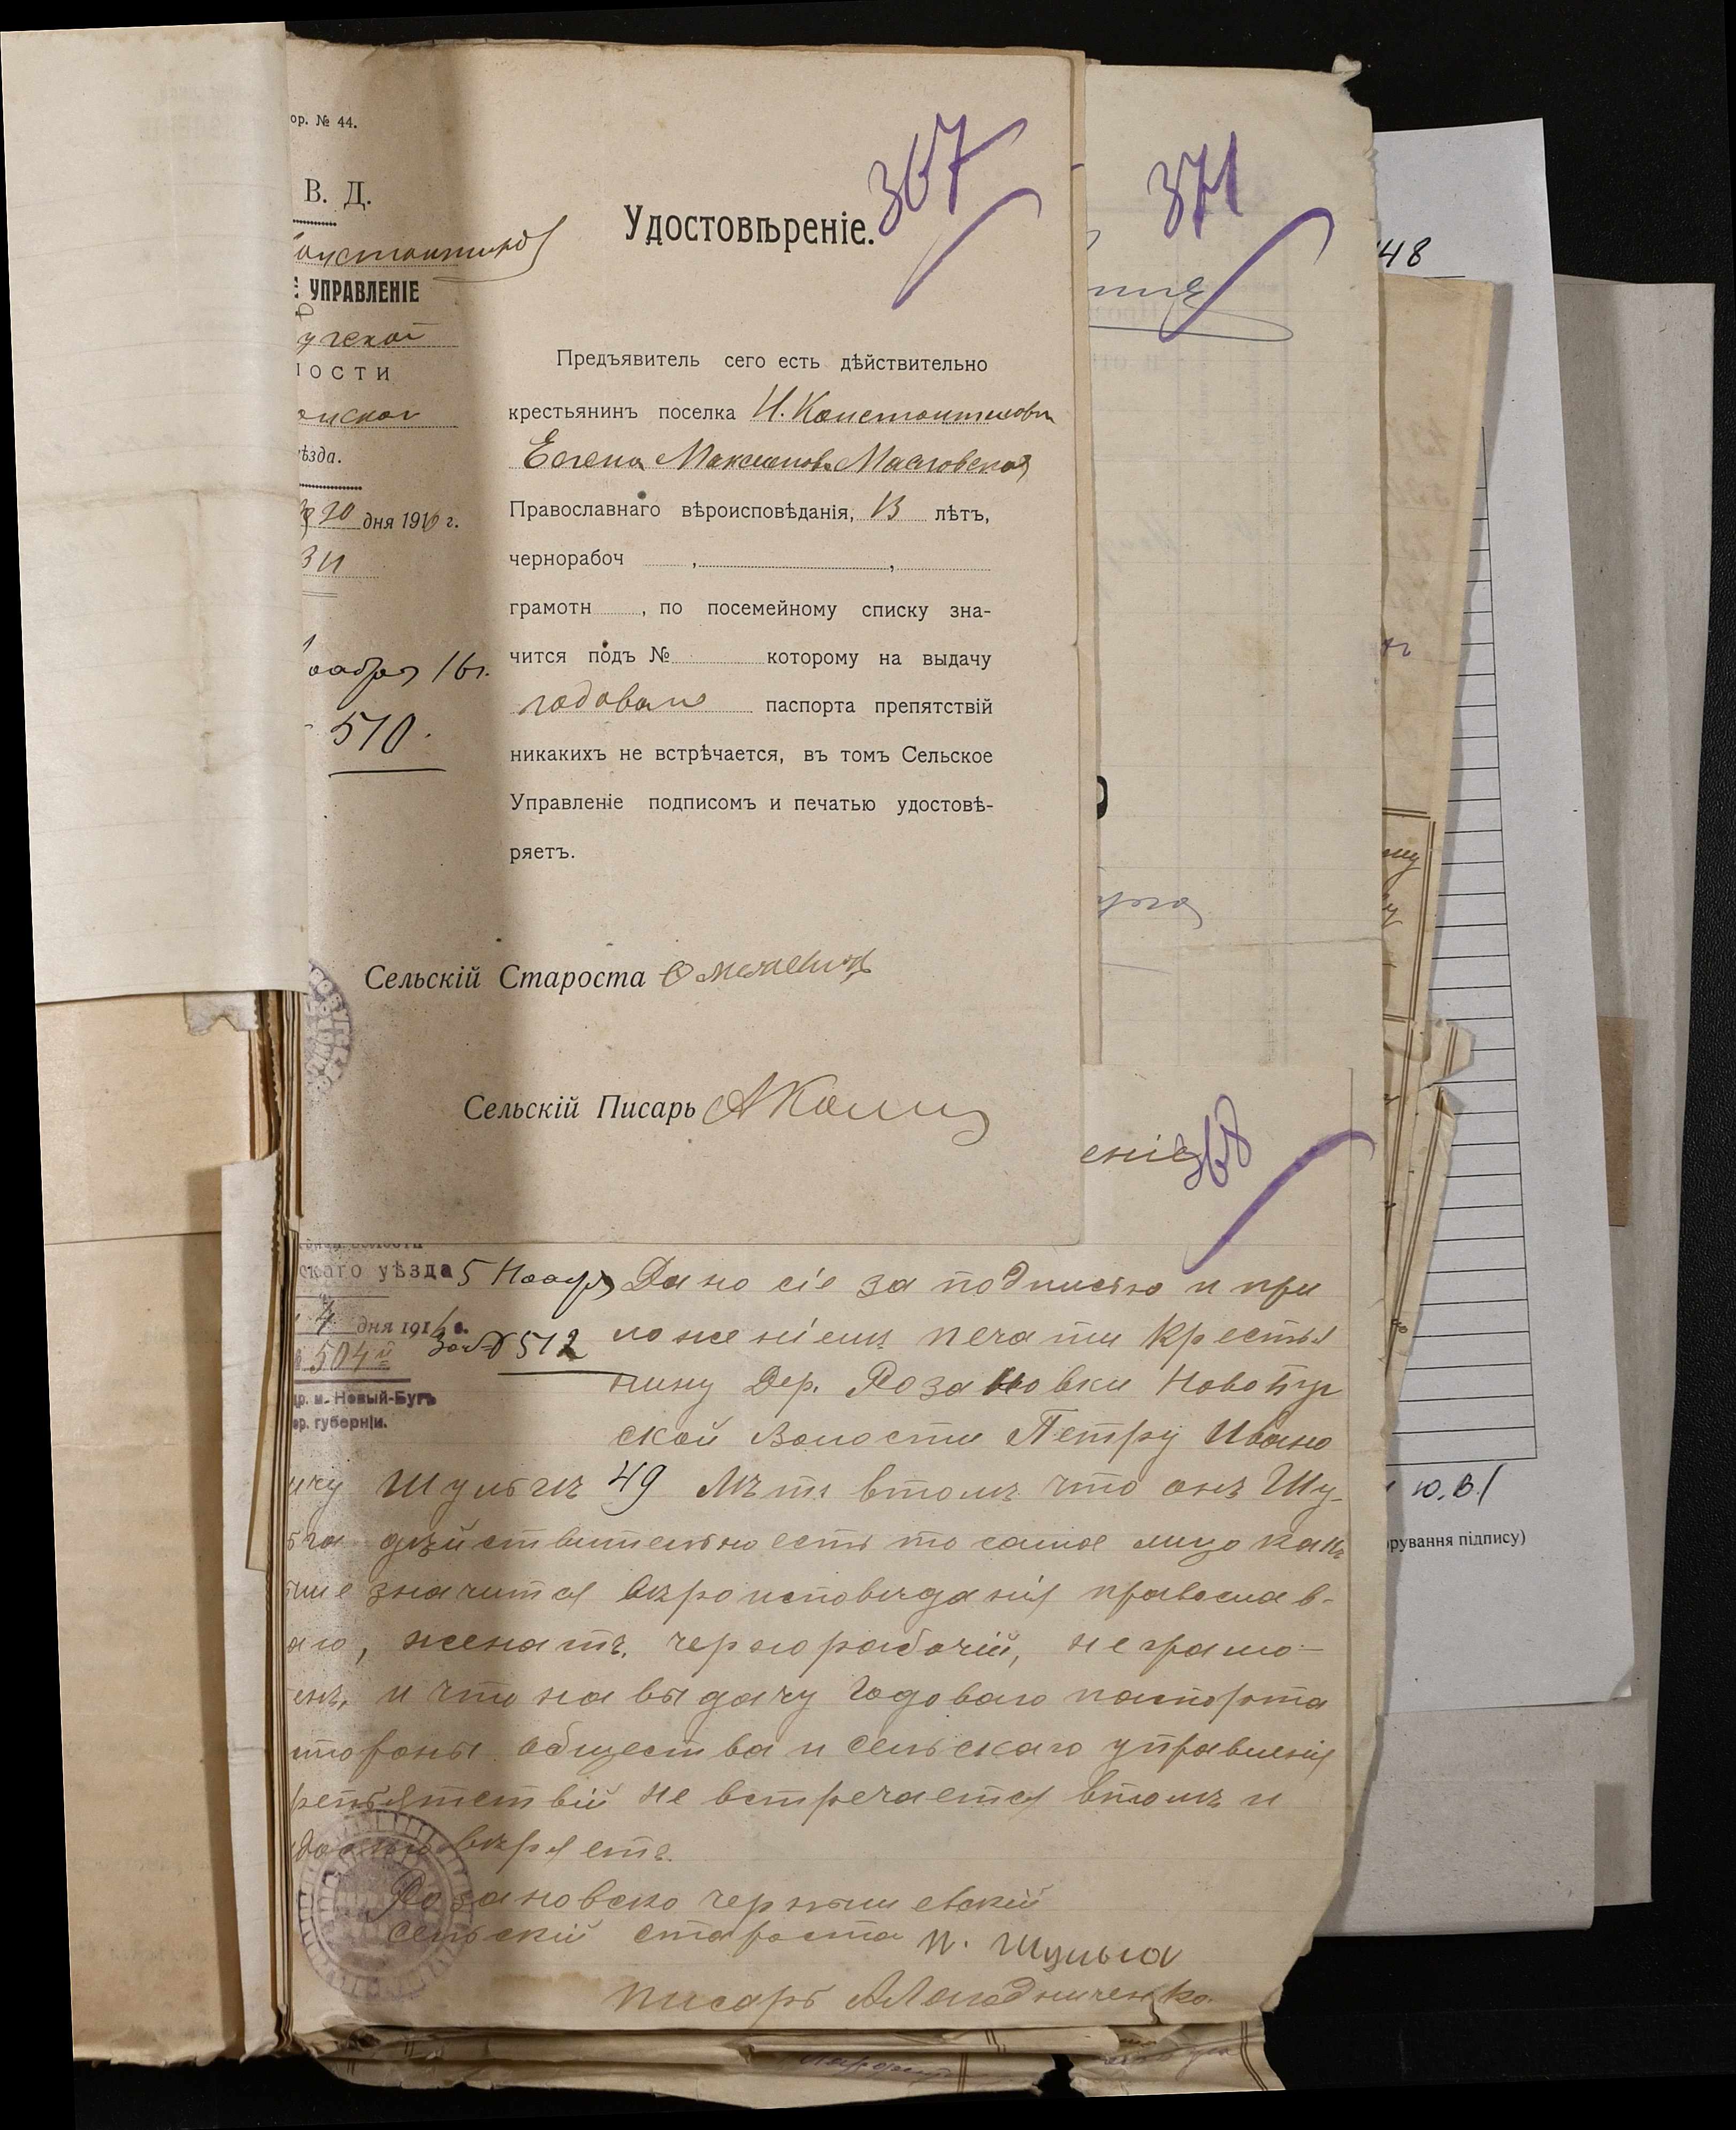 ор. № 44.
В. Д.
УПРАВЛЕНІЕ
ости
ѣзда.
20 дня 1916 г.
оября 16 г.
510.
367
Удостовѣреніе.
Предъявитель сего есть дѣйствительно
крестьянинъ поселка Н. Константиновки
Евгенія Максимова Масловская
Православнаго вѣроисповѣданія, 13 лѣтъ,
чернорабоч , ,
грамотн , по посемейному списку зна-
чится подъ № которому на выдачу
годоваго паспорта препятствій
никакихъ не встрѣчается, въ томъ Сельское
Управленіе подписомъ и печатью удостовѣ-
ряетъ.
Сельскій Староста
Сельскій Писарь
371
48
368
еніе
скаго уѣзда
4 дня 1916 г.
504
р. м. Новый-Бугъ
ер. губерніи.
5 Ноября
за № 512
Дано сіе за подписью и при
ложеніемъ печати крестья
нину дер. Розановки Новобуг
ской Волости Петру Ивано
ичу Шульгъ 49 лѣтъ втомъ что онъ Шу-
ьга дѣйствительно есть то самое лицо какъ
значится вѣроисповѣданія православ-
аго, женатъ, чернорабочій, неграмо-
енъ, и что на выдачу годоваго паспорта
стороны общества и сельскаго управленія
репятствій не встречается втомъ и
достовѣряетъ.
Розановско чернышевскій
сельскій староста П. Шульга
писарь
ю.В.
рування підпису)